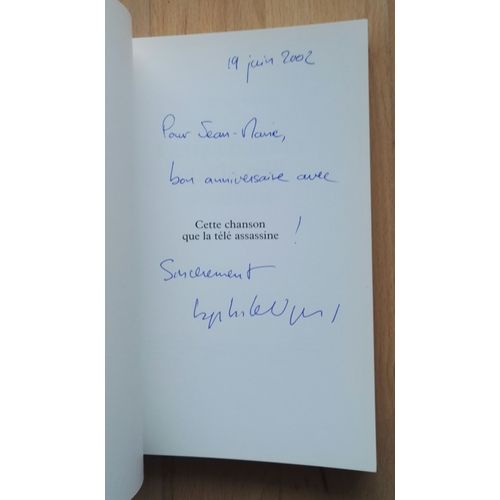 19 juin 2002
Pour Jean-Marie,
bon anniversaire avec
Cette chanson
que la télé assassine !
Sincerement